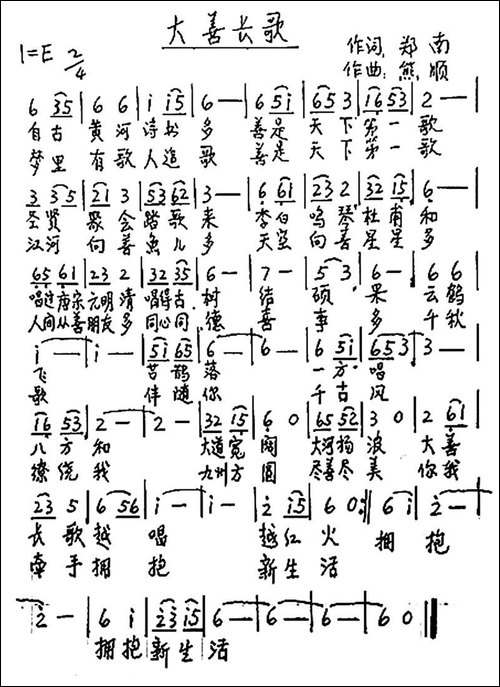 大善长歌
作词：郑南
1=E 2/4
作曲：熊顺
6 3 5 | 6 6 | i i 5 | 6 — | 6 5 i | 6 5 3 | i 6 5 3 | 2 — |
自古黄河诗书多 善是天下第一歌
梦里有歌人追歌 善是天下第一歌
3 3 5 | 2 1 3 | 5 3 6 2 | 3 — | 6 6 1 | 2 3 2 | 3 2 1 5 | 6 — |
圣贤聚会踏歌来 李白鸣琴杜甫和
江河向善鱼儿多 天空向善星星多
6 5 6 1 | 2 3 2 | 3 2 3 5 | 6 — | 7 — | 5 3 | 6 — | 6 6 |
唱过唐宋元明清 唱得古树结硕果 云鹤
人间从善朋友多 同心同德喜事多 千秋
i — | i — | 5 i 6 5 | 6 — | 6 — | 6 5 i | 6 5 3 | 3 — |
飞 苔鹊落 一方唱
歌 伴随你 千古风
i 6 5 3 | 2 — | 2 — | 3 2 1 5 | 6 0 | 6 5 5 2 | 3 0 | 2 6 1 |
八方和 大道宽阔 大河扬浪 大善
缭绕我 九州方圆 尽善尽美 你我
2 3 5 | 6 5 6 | i — | i — | 2 i 5 | 6 0 :‖ 6 i | 2 — |
长歌越唱 越红火 拥抱
牵手拥抱 新生活
2 — | 6 i | 2 3 i 5 | 6 — | 6 — | 6 — | 6 0 ‖
拥抱新生活